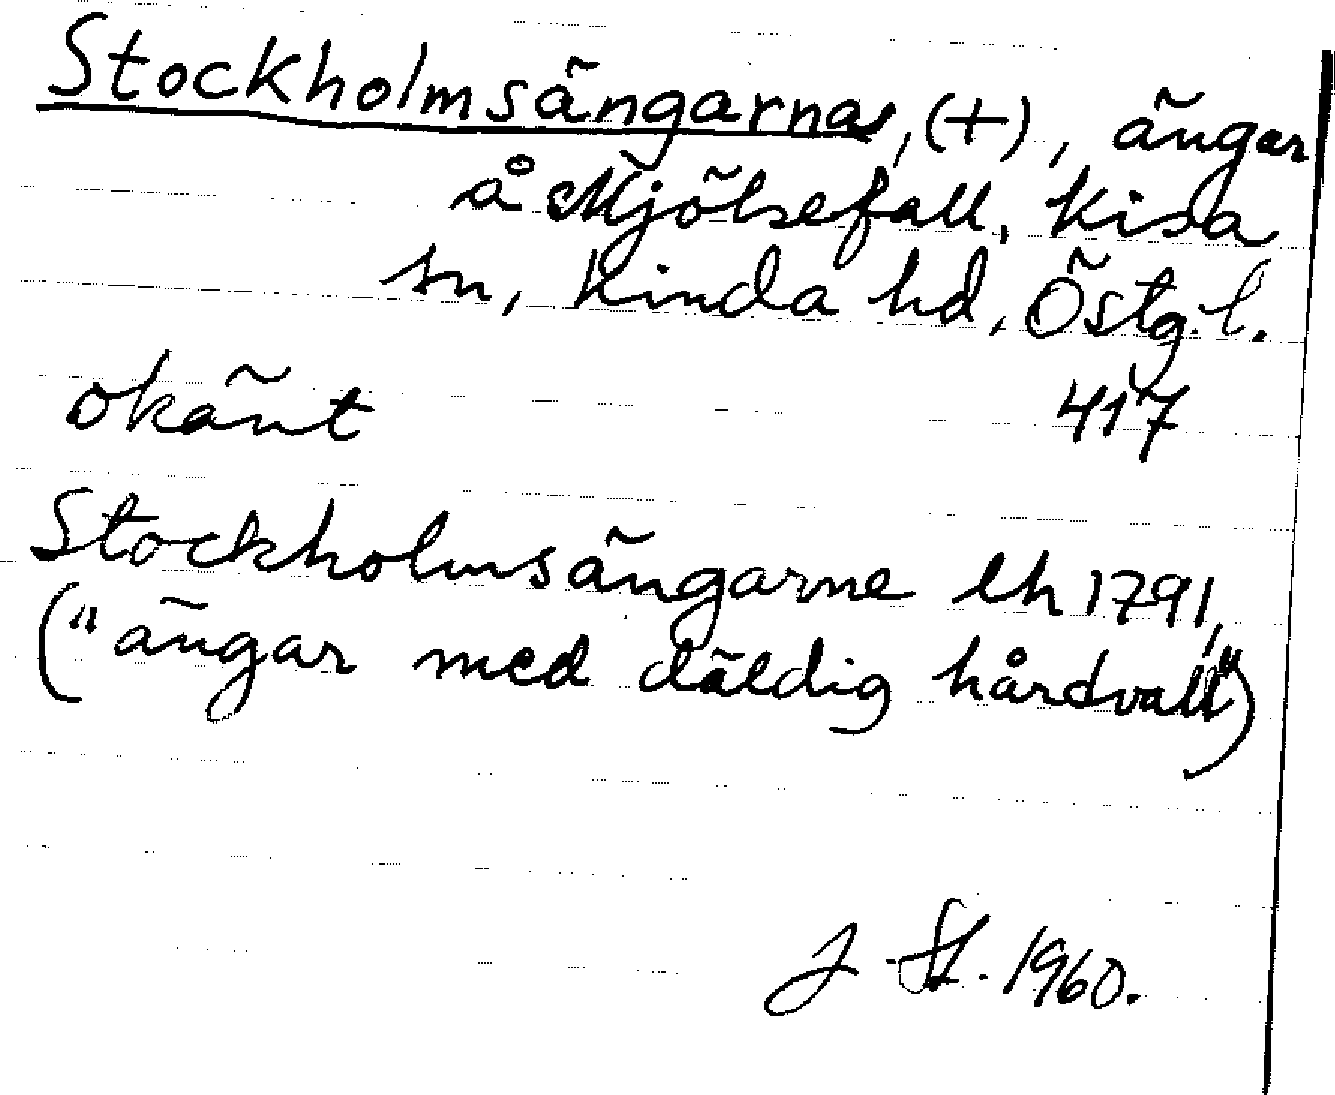 Stockholmsängarna, (+), ängar
å Mjölsefall, Kisa
sn, Kinda hd, Östg.l.
okänt 417
Stockholmsängarne lh 1791,
("ängar med däldig hårdvall")
J St. 1960.